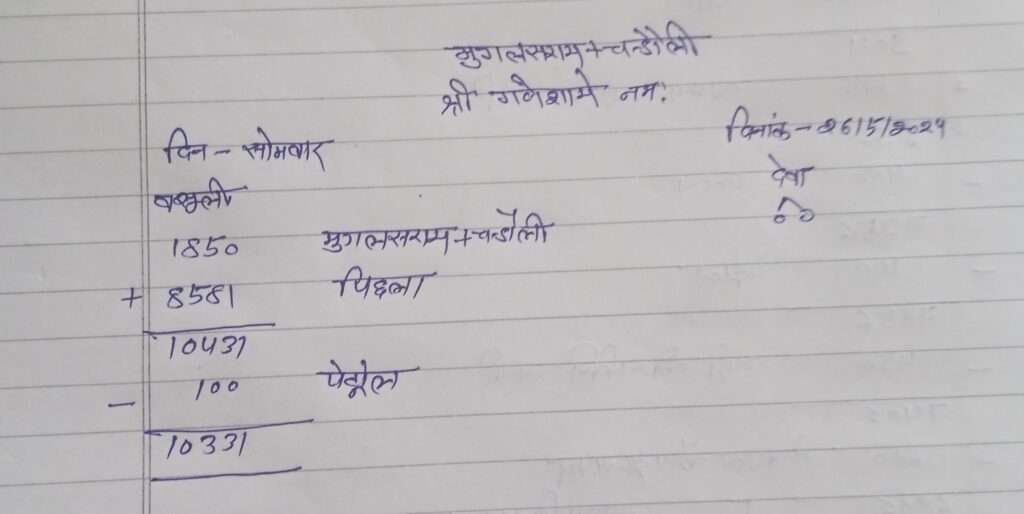 मुगलसराय + चन्दौली
श्री गणेशाये नम:
दिनांक - 26/5/2025
दिन - सोमवार
देवा
वसुली
1850 मुगलसराय + चन्दौली
+ 8581 पिछला
10431
- 100 पेट्रोल
10331